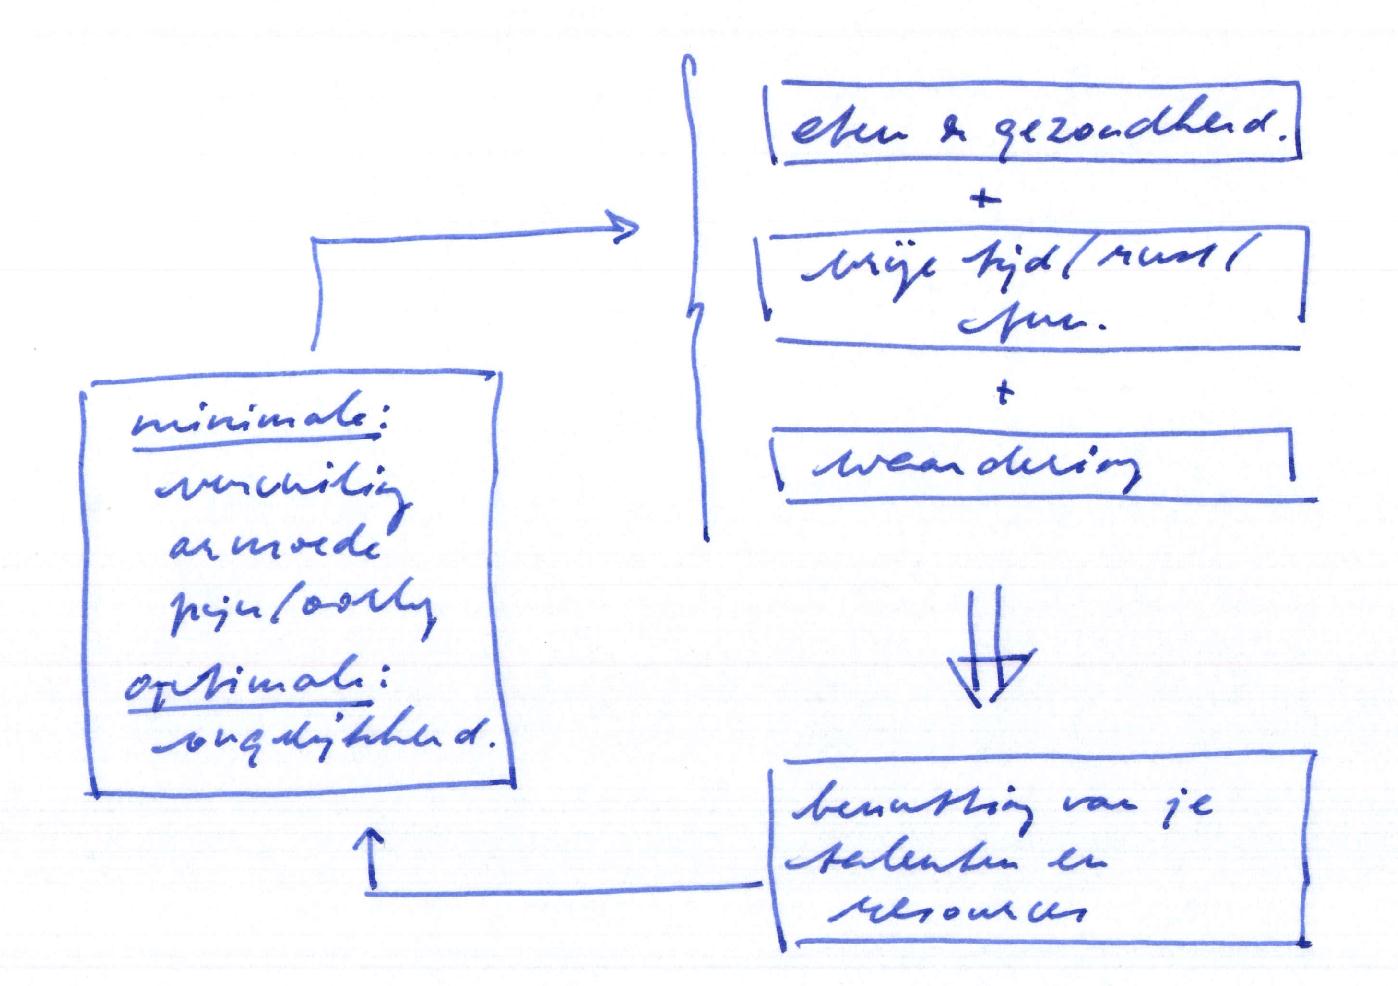 eten & gezondheid.
+
vrije tijd/rust/
fun.
+
waardering
minimale:
vervuiling
armoede
pijn/oorlog
optimale:
ongelijkheid.
benutting van je
talenten en
resources